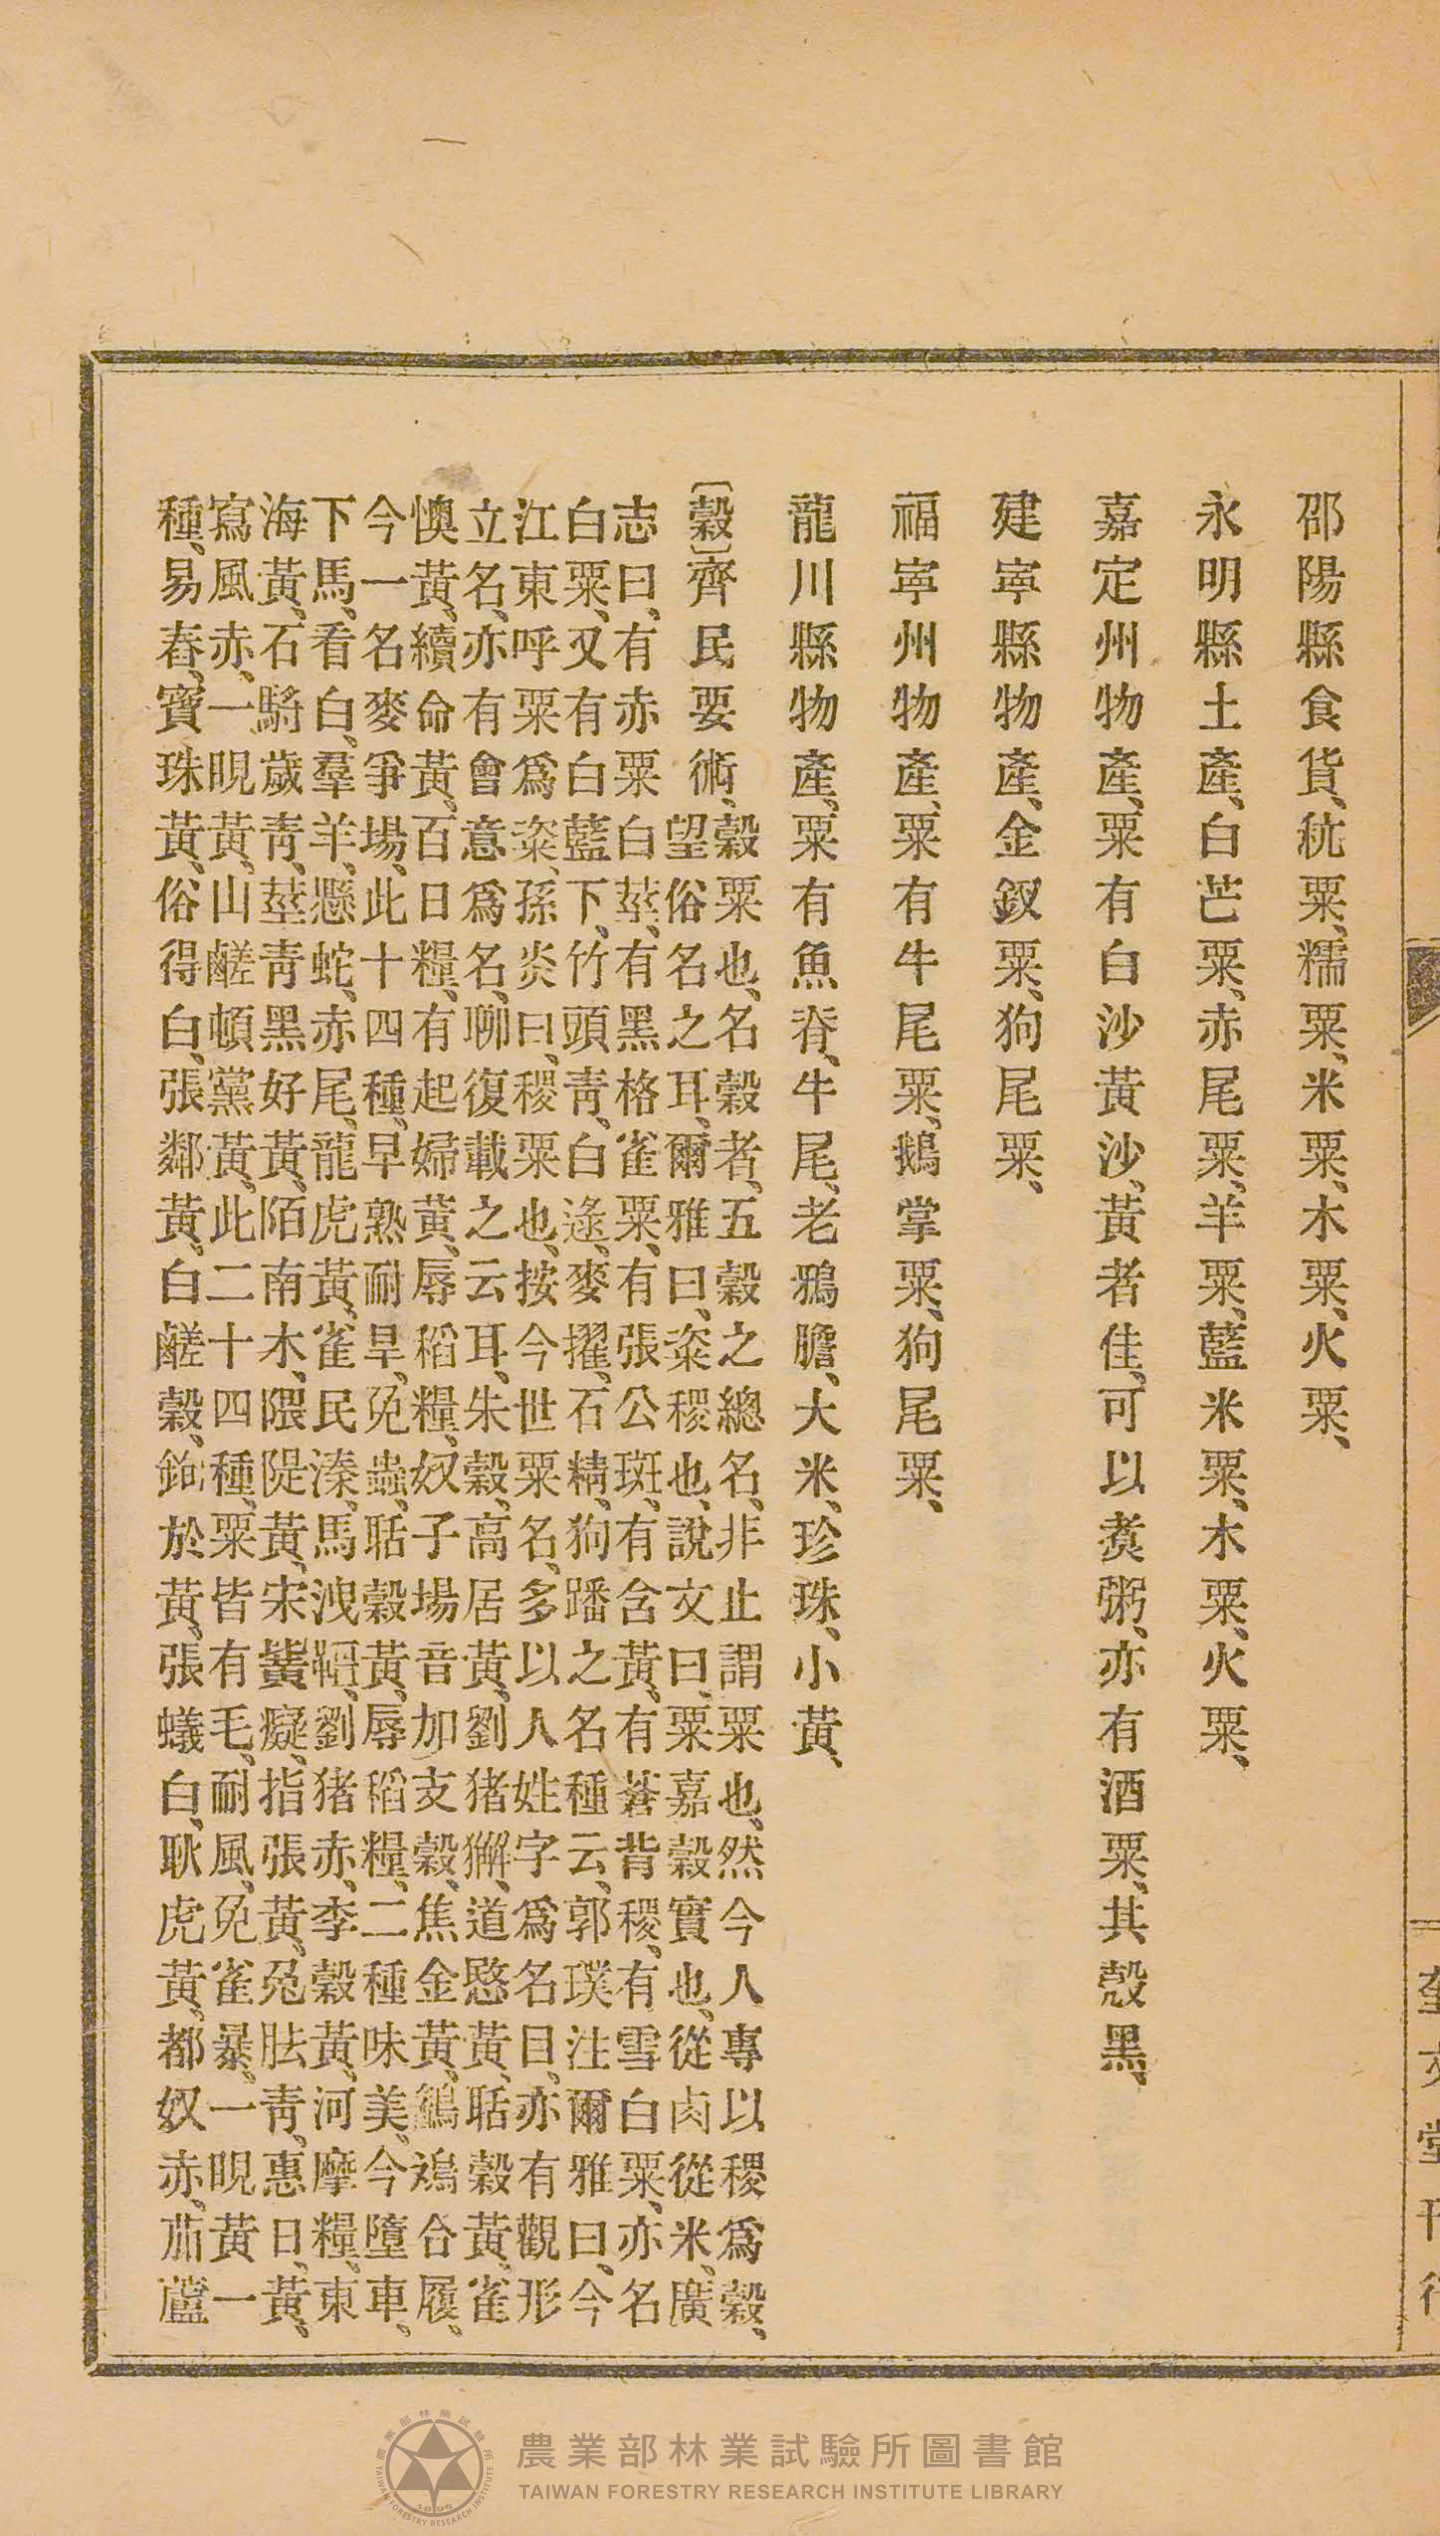 邵陽縣食貨、秔粟、糯粟、米粟、木粟、火粟、
永明縣土產、白芒粟、赤尾粟、羊粟、藍米粟、木粟、火粟、
嘉定州物產、粟有白沙黃沙、黃者佳、可以煑粥、亦有酒粟、其殼黑、
建寧縣物產、金釵粟、狗尾粟、
福寧州物產、粟有牛尾粟、鵝掌粟、狗尾粟、
龍川縣物產、粟有魚脊、牛尾、老鴉膽、大米、珍珠、小黃、
〔穀〕齊民要術、
穀粟也、名穀者、五穀之總名、非止謂粟也、然今人專以稷爲穀、
望俗名之耳、爾雅曰、粢稷也、說文曰、粟嘉穀實也、從卤從米、廣
志曰、有赤粟白莖、有黑格雀粟、有張公斑、有含黃、有蒼背稷、有雪白粟、亦名
白粟、又有白藍下、竹頭青、白逯、麥擢、石精、狗蹯之名種云、郭璞注爾雅曰、今
江東呼粟爲粢、孫炎曰、稷粟也、按今世粟名、多以人姓字爲名目、亦有觀形
立名、亦有會意爲名、聊復載之云耳、朱穀、高居黃、劉猪獬、道愍黃、聒穀黃、雀
懊黃、續命黃、百日糧、有起婦黃、辱稻糧、奴子場音加支穀、焦金黃、鶴鴆合履、
今一名麥爭場、此十四種、早熟耐旱、免蟲、聒穀黃、辱稻糧、二種味美、今墮車、
下馬看、白羣羊、懸蛇、赤尾、龍虎黃、雀民溱、馬洩韁、劉猪赤、李穀黃、河摩糧、東
海黃、石𩦺歲青、莖青黑好黃、陌南木、隈隄黃、宋冀癡、指張黃、兔胠青、惠日黃、
寫風赤、一晛黃、山鹺頓黨黃、此二十四種、粟皆有毛、耐風、免雀暴、一晛黃一
種、易舂、寶珠黃、俗得白、張鄰黃、白鹺穀、鉤於黃、張蟻白、耿虎黃、都奴赤、茄蘆
農業部林業試驗所圖書館
TAIWAN FORESTRY RESEARCH INSTITUTE LIBRARY
農業部林業試驗所
TAIWAN FORESTRY RESEARCH INSTITUTE
1896